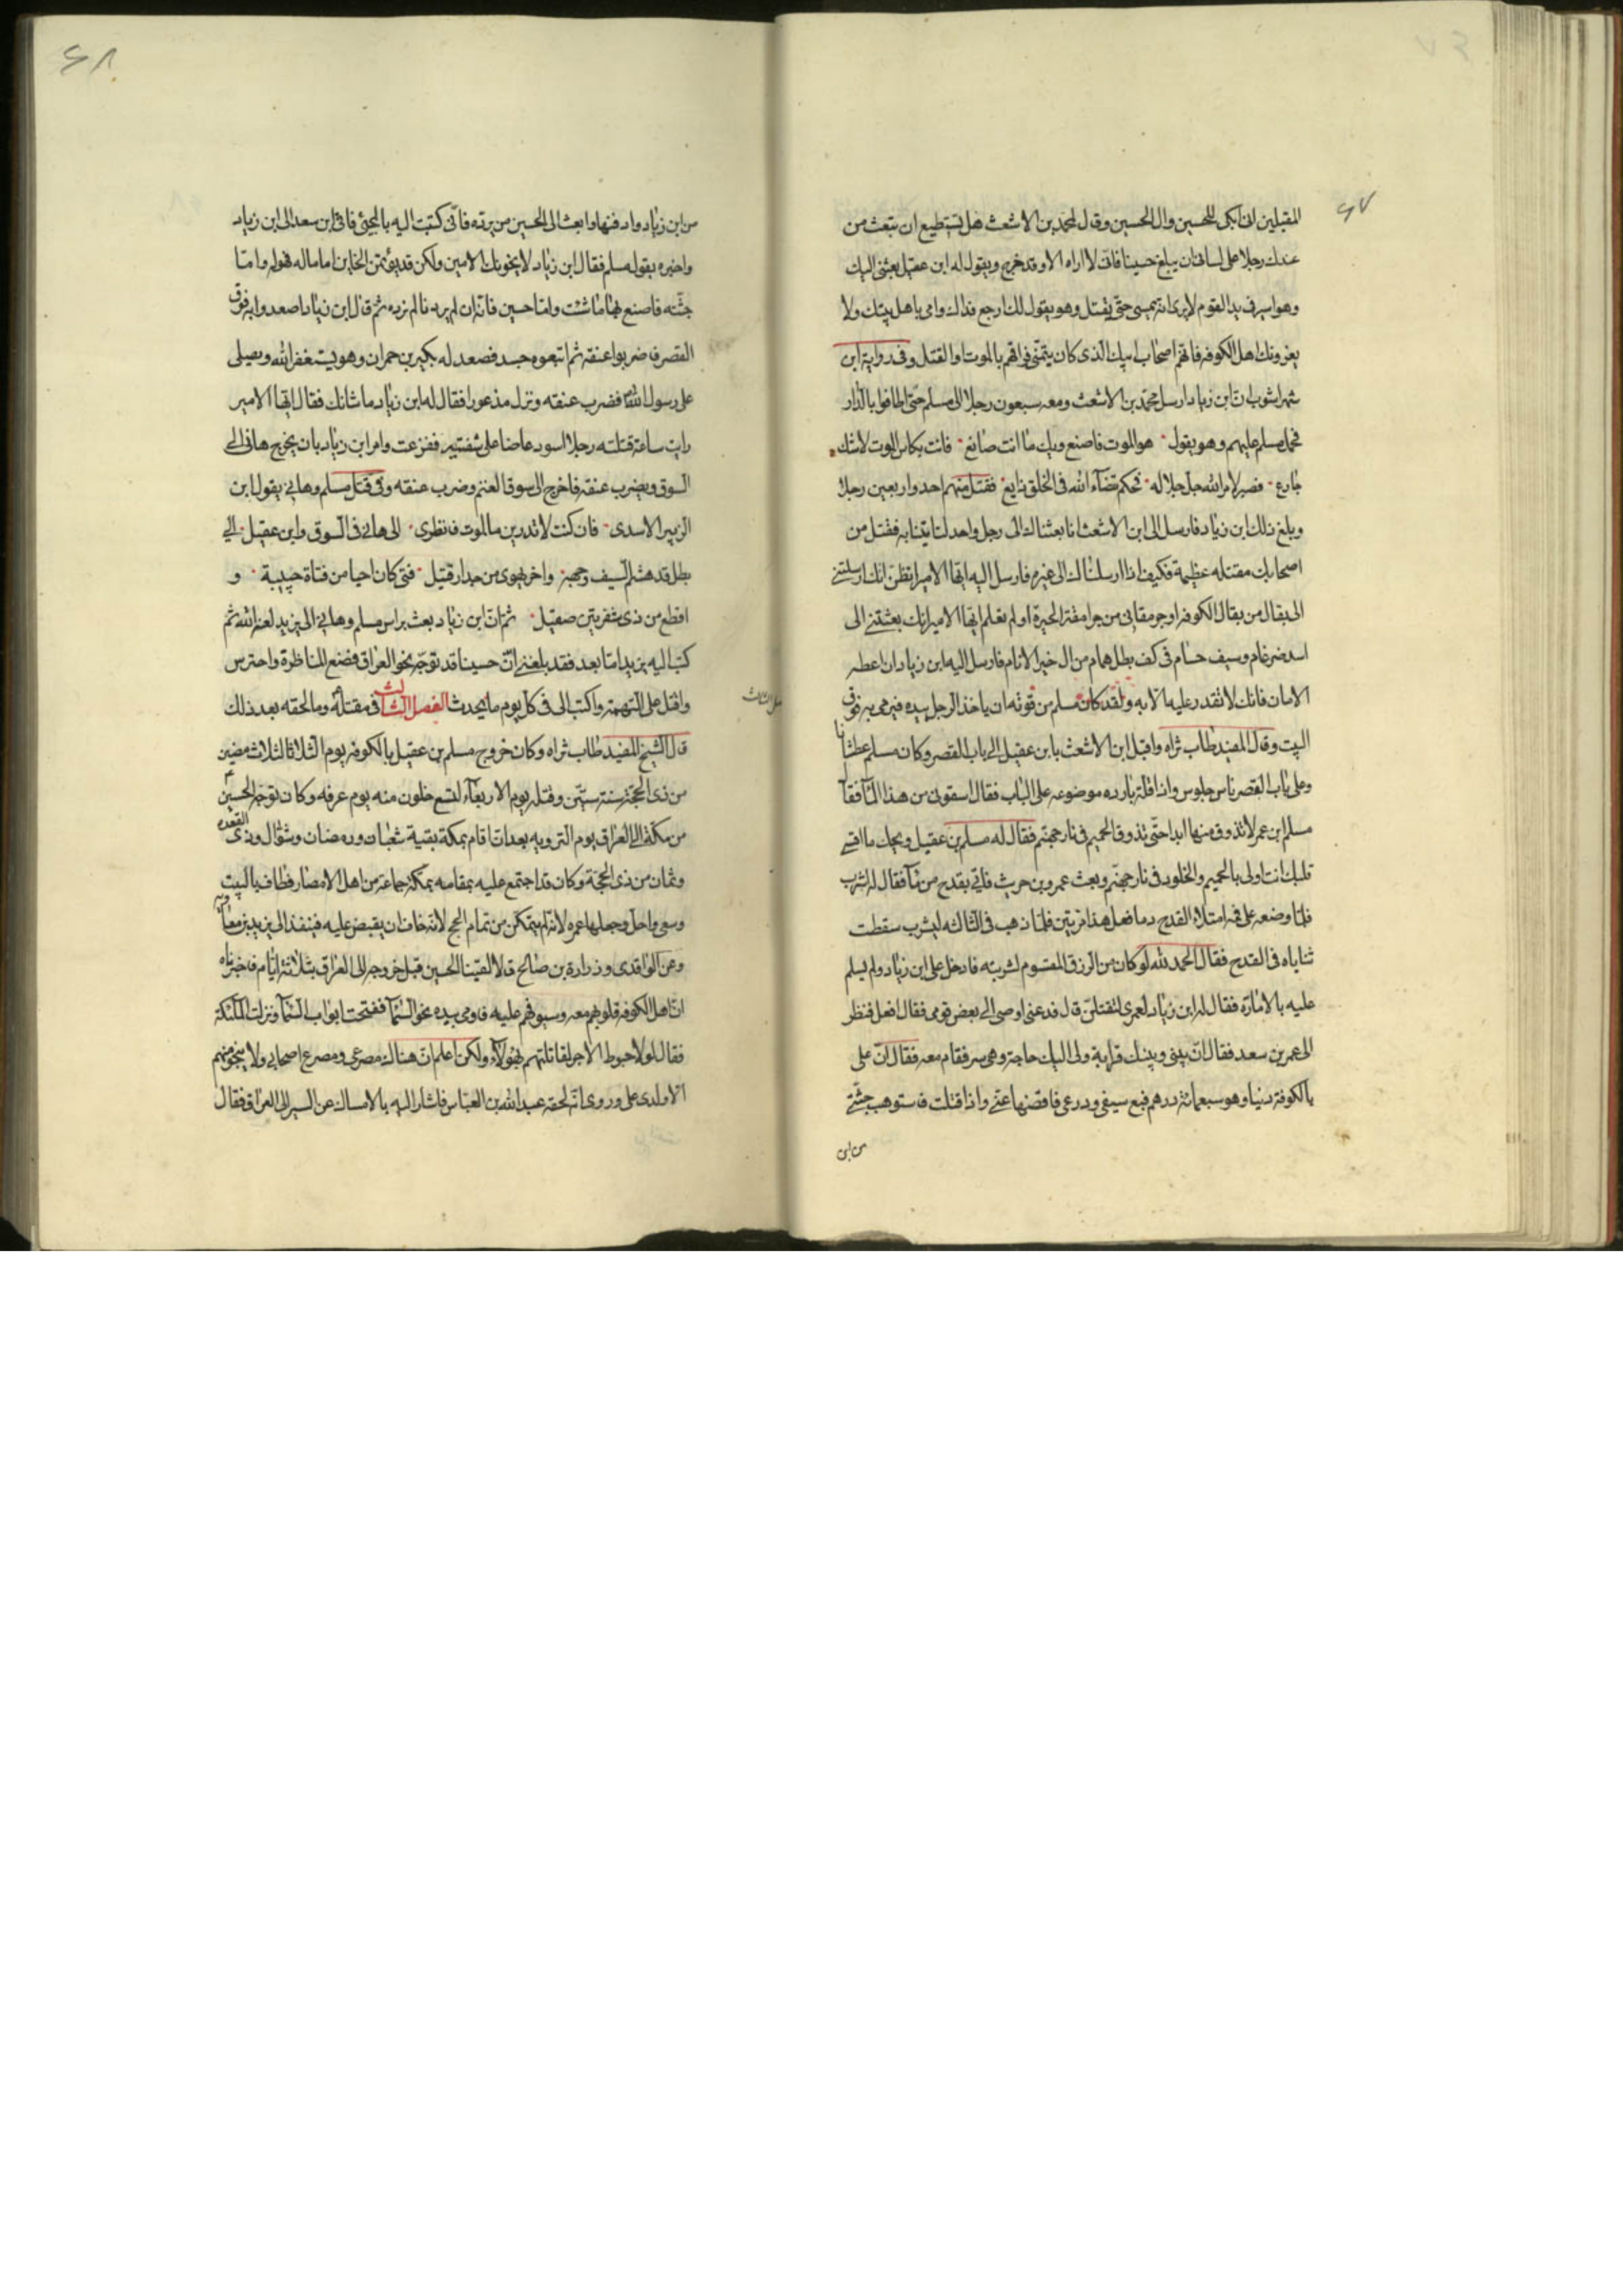 ٦٧
المقبلين ابكى للحسين وال الحسين وقال لمحمد بن الاشعث هل تستطيع ان تبعث من
عندك رجلا على لسانى ان يبلغ حسينا فانى لا اراه الا وقد خرج ويقول له ابن عقيل بعثنى اليك
وهو اسير فى يد القوم لا يرى انه يمسى حتى يقتل وهو يقول لك ارجع فداك وامى باهل بيتك ولا
يغرونك اهل الكوفه فانهم اصحاب ابيك الذى كان يتمنى فراقهم بالموت او القتل وفى رواية ابن
شهراشوب ان ابن زياد ارسل محمد بن الاشعث ومعه سبعون رجلا الى مسلم حتى اطافوا بالدار
فحمل مسلم عليهم وهو يقول هو الموت فاصنع ويك ما انت صانع فانت بكاس الموت لا شك
جارع فصبر لامر الله جل جلاله فحكم قضآء الله فى الخلق ذايع فقتل منهم احد واربعين رجلا
وبلغ ذلك ابن زياد فارسل الى ابن الاشعث انا بعثناك الى رجل واحد لتاتينا به فقتل من
اصحابك مقتله عظيمة فكيف اذا ارسلناك الى غيره فارسل اليه ايها الامير اتظن انك ارسلتنى
الى بقال من بقال الكوفه او جرمقانى من جرامقة الحيرة او لم تعلم ايها الامير انك بعثتنى الى
اسد ضرغام وسيف حسام فى كف بطل همام من ال خير الانام فارسل اليه ابن زياد ان اعطه
الامان فانك لا تقدر عليه الا به ولقد كان مسلم من قوته ان ياخذ الرجل بيده فيرمى به فوق
البيت وقال المفيد طاب ثراه واقبل ابن الاشعث بابن عقيل الى باب القصر وكان مسلم عطشانا
وعلى باب القصر ناس جلوس واذا قلة بارده موضوعه على الباب فقال اسقونى من هذا المآ فقال
مسلم ابن عمر لا تذوق منها ابدا حتى تذوق الحميم فى نار جهنم فقال له مسلم بن عقيل ويحك ما اقسى
قلبك انت اولى بالحميم والخلود فى نار جهنم وبعث عمرو بن حريث فاتى بقدح من مآ فقال له اشرب
فلما وضعه على فمه امتلاء القدح دما فعل هذا مرتين فلما ذهب فى الثالثه ليشرب سقطت
ثناياه فى القدح فقال الحمد لله لو كان من الرزق المقسوم لشربته فادخل على ابن زياد ولم يسلم
عليه بالامارة فقال له ابن زياد لعمرى لتقتلن قال فدعنى اوصى الى بعض قومى فقال افعل فنظر
الى عمر بن سعد فقال ان بينى وبينك قرابة ولى اليك حاجة وهى سر فقام معه فقال ان على
بالكوفة دينا وهو سبعمائة درهم فبع سيفى ودرعى فاقضها عنى واذا قتلت فاستوهب جثتى
من ابن
٦٨
من ابن زياد وادفنها وابعث الى الحسين من يرده فانى كتبت اليه بالمجئ فاتى ابن سعد الى ابن زياد
واخبره بقول مسلم فقال ابن زياد لا يخونك الامين ولكن قد يؤتمن الخاين اما ماله فهو له واما
جثته فاصنع بها ما شئت واما حسين فانه ان لم يردنا لم نرده ثم قال ابن زياد اصعدوا به فوق
القصر فاضربوا عنقه ثم اتبعوه جسده فصعد له بكير بن حمران وهو يستغفر الله ويصلى
على رسول الله فضرب عنقه ونزل مذعورا فقال له ابن زياد ما شانك فقال ايها الامير
رايت ساعة قتلته رجلا اسود عاضا على شفتيه ففزعت وامر ابن زياد بان يخرج هانى الى
السوق ويضرب عنقه فاخرج الى سوق الغنم وضرب عنقه وفى قتل مسلم وهانى يقول ابن
الزبير الاسدى فان كنت لا تدرين ما الموت فانظرى الى هانى فى السوق وابن عقيل الى
بطل قد هشم السيف وجهه واخر يهوى من جدار قتيل فتى كان احيا من فتاة حييية و
اقطع من ذى شفرتين صقيل ثم ان ابن زياد بعث براس مسلم وهانى الى يزيد لعنه الله ثم
كتب اليه يزيد اما بعد فقد بلغنى ان حسينا قد توجه نحو العراق فضع المناظرة واحترس
واقتل على التهمة واكتب الى فى كل يوم ما يحدث الفصل الثالث فى مقتله وما لحقه بعد ذلك
قال الشيخ المفيد طاب ثراه وكان خروج مسلم بن عقيل بالكوفه يوم الثلاثا لثلاث مضين
من ذى الحجة سنة ستين وقتله يوم الاربعآء لتسع خلون منه يوم عرفه وكان توجه الحسين
من مكة الى العراق يوم الترويه بعد ان اقام بمكة بقية شعبان ورمضان وشوال وذى القعده
وثمان من ذى الحجة وكان قد اجتمع عليه بمقامه بمكة جماعة من اهل الامصار فطاف بالبيت
وسعى واحل وجعلها عمره لانه لم يتمكن من تمام الحج لانه خاف ان يقبض عليه فينفذ الى يزيد بن معاويه
وعن الواقدى وزرارة بن صالح قالا لقينا الحسين قبل خروجه الى العراق بثلاثة ايام فاخبرناه
ان اهل الكوفه قلوبهم معه وسيوفهم عليه فاومى بيده نحو السمآ ففتحت ابواب السمآ ونزلت الملئكة
فقال لولا حبوط الاجر لقاتلتهم بهؤلآء ولكن اعلم ان هناك مصرعى ومصرع اصحابى ولا ينجو منهم
الا ولدى على وروى انه لحقه عبد الله بن العباس فاشار اليه بالامساك عن السير الى العراق فقال